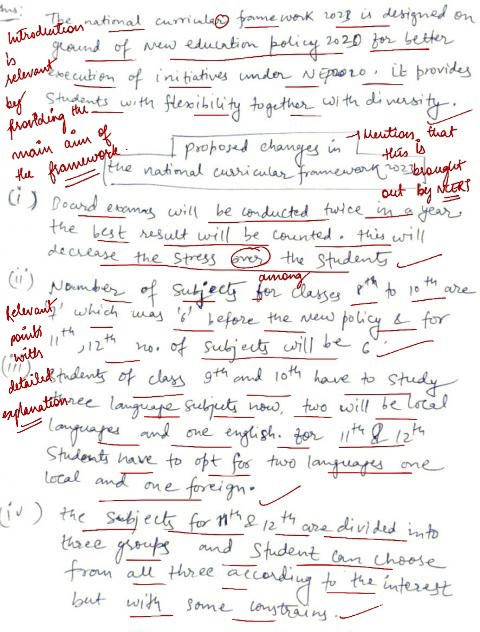 Ans:
The national curricular framework 2023 is designed on
ground of New education policy 2020 for better
execution of initiatives under NEP2020. it provides
Students with flexibility together with diversity.
Introduction
is
relevant
by
providing the
main aim of
the framework.
proposed changes in
the national curricular framework 2023
Mention that
this is
brought
out by NCERT
(i) Board exams will be conducted twice in a year,
the best result will be counted. this will
decrease the stress over the students
among
(ii) Number of subjects for classes 8th to 10th are
7 which was '6' before the new policy & for
11th, 12th no. of subjects will be 6
Relevant
points
with
detailed
explanation
(iii) Students of class 9th and 10th have to study
three language subjects now, two will be local
languages and one english. for 11th & 12th
Students have to opt for two languages one
local and one foreign.
(iv) the subjects for 11th & 12th are divided into
three groups and student can choose
from all three according to the interest
but with some constrains.